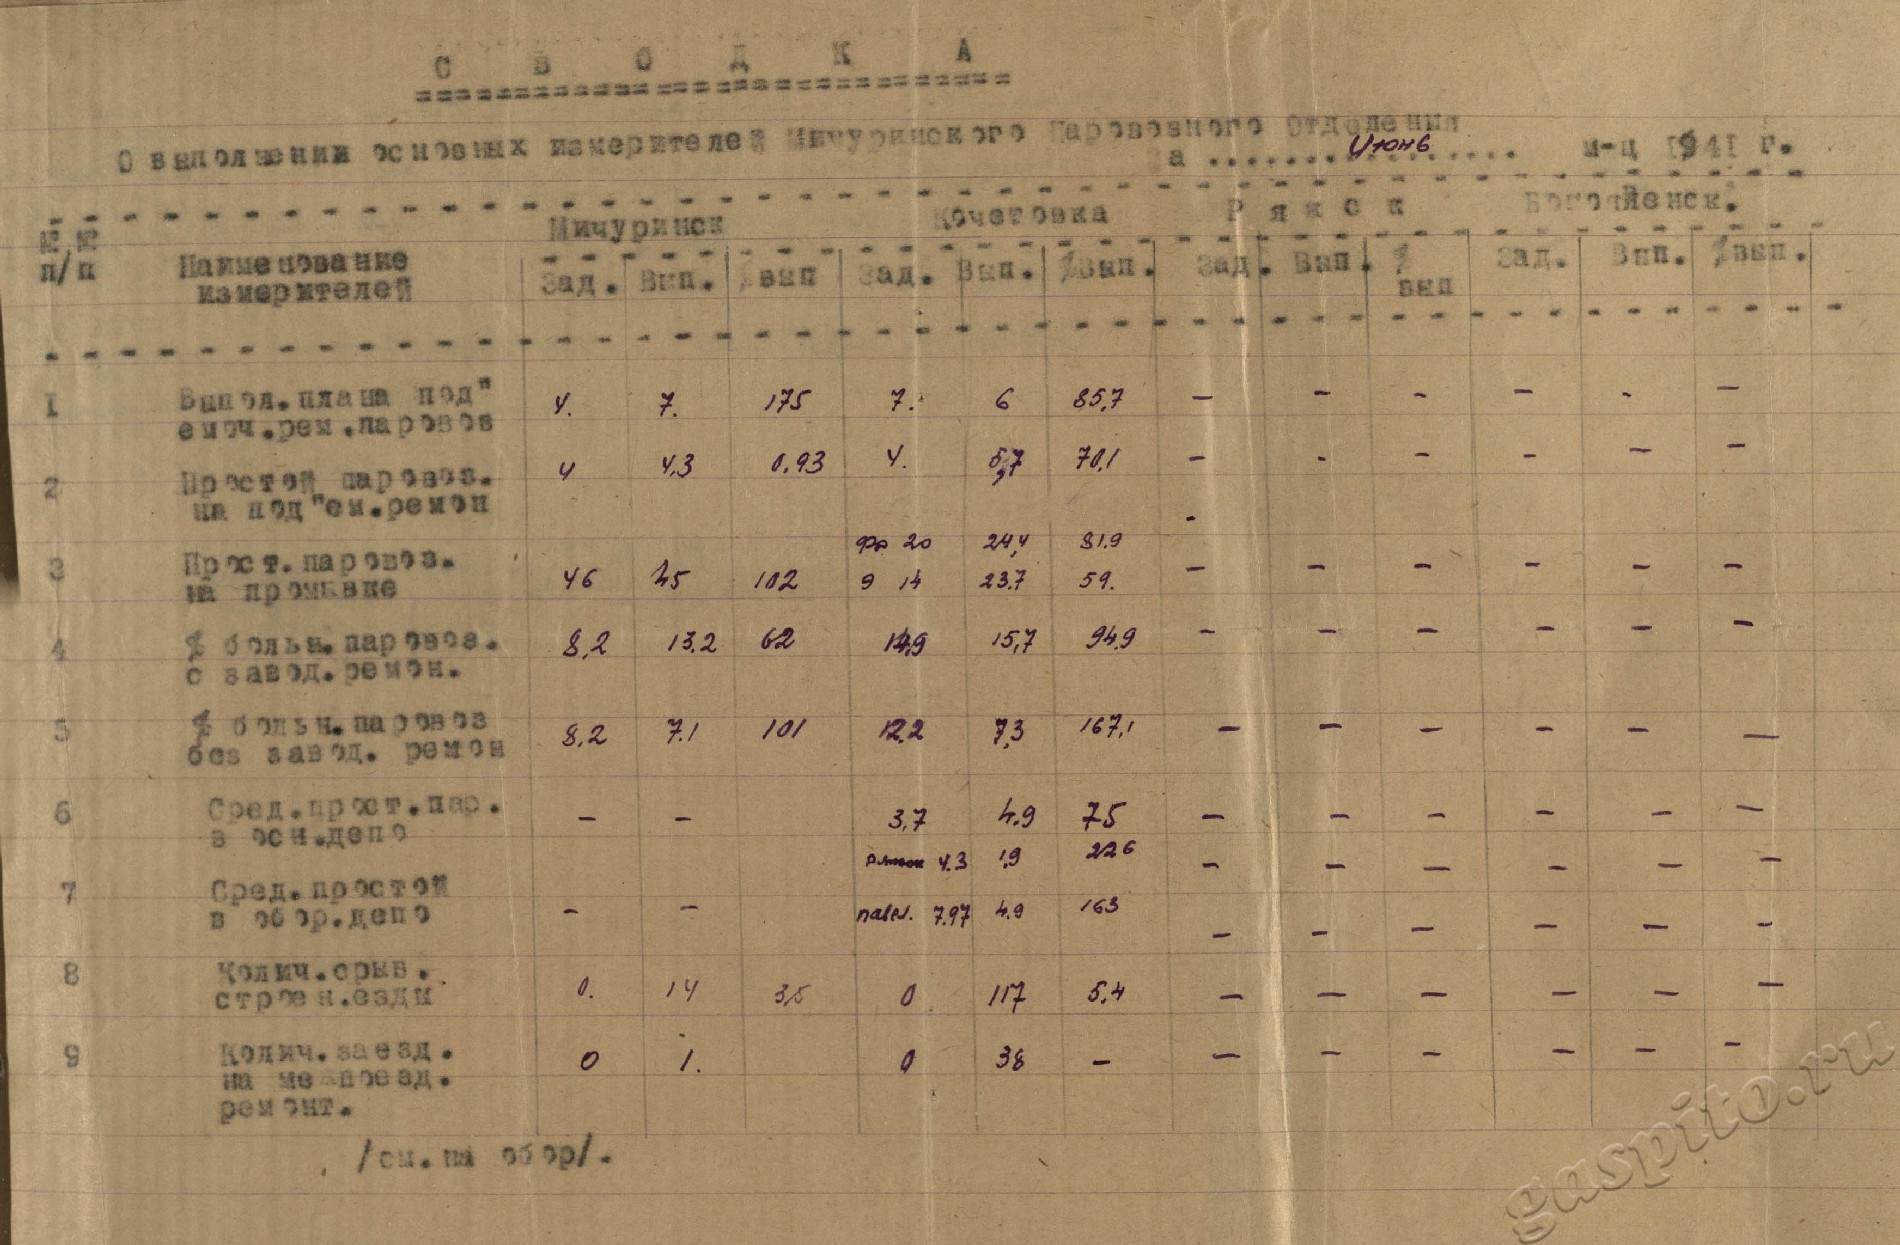 С В О Д К А
О выполнении основных измерителей Мичуринского Паровозного Отделения
за ................ Июнь м-ц 1941 г.
№№ п/п Наименование измерителей
Мичуринск Кочетовка Р я ж с к Богоявленск.
Зад. Вып. % вып Зад. Вып. % вып. Зад. Вып. % вып Зад. Вып. % вып.
I Выпол.плана под" емоч.рем.паровоз 4. 7. 175 7. 6 85,7 — — - — - —
2 Простой паровоз. на под"ем.ремон 4 4,3 0,93 4. 5,7 70,1 — - — - — —
20 24,4 81.9 -
3 Прост.паровоз. на промывке 46 45 102 Э 14 23.7 59. — — — — — —
4 % больн.паровоз. с завод.ремон. 8,2 13.2 62 14,9 15,7 94,9 — — — — — —
5 % больн.паровоз без завод. ремон 8,2 7.1 101 12,2 7,3 167,1 — — — — — —
6 Сред.прост.пар. в осн.депо — — 3,7 4.9 75 — — — — — —
4.3 1,9 226 — — — — — —
7 Сред.простой в обор.депо — — павел. 7.97 4.9 163 — — — — — —
8 Колич.срыв. строен.езды 0. 14 3,5 0 117 5,4 — — — — — —
9 Колич.заезд. на межпоезд. ремонт. 0 1. 0 38 — — — — — — —
/см.на обор/.
gaspito.ru